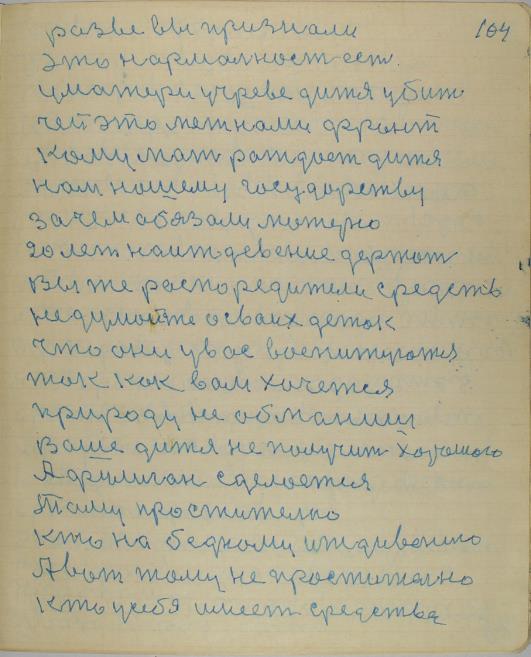 164
разве вы признали
это нармалност ест
уматери учреве дитя убит
чей это межнами фронт
кому мат раждает дитя
нам нашему государству
зачем обязали матерю
20 лет наиждевение держат
вы же распоредители средств
недумайте осваих деток
что они увас воспитуются
так как вам хочется
природу не обманиш
ваше дитя не получит хорошого
А
сделается
Таму простително
кто на бедному иждивению
Авот тому не простително
кто усебя имеет средства